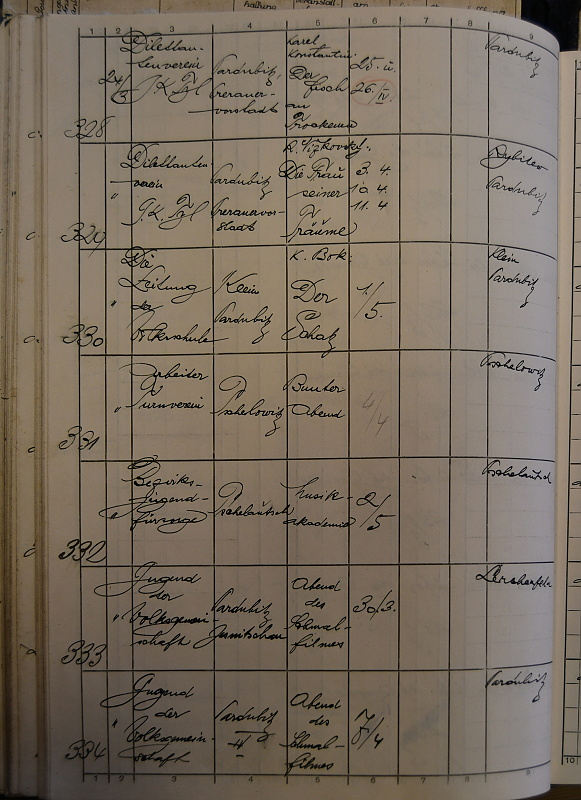 1 2 3 4 5 6 7 8 9
328
24/3
Dilettan-
tenverein
J. K. Tyl
Pardubitz,
vorstadt
Karel
Konstantin:
Der
fisch
am
Trockenen
25. u.
26./IV.
Pardubitz
329
"
Dilettanten-
verein
J. K. Tyl
Pardubitz
stadt
Die Frau
seiner
Träume
3. 4.
10. 4.
11. 4.
Rybitew
Pardubitz
330
"
Die
Leitung
der
Volksschule
Klein
Pardubitz
K. Bok:
Der
Schatz
1/5.
Klein
Pardubitz
331
"
Arbeiter
Turnverein
Pschelowitz
Bunter
Abend
4/4
Pschelowitz
332
"
Bezirks-
Jugend-
fürsorge
Pschelautsch
Musik-
akademie
2/5
Pschelautsch
333
"
Jugend
der
Volksgemein-
schaft
Pardubitz
Abend
des
Schmal-
filmes
30/3.
334
"
Jugend
der
Volksgemein-
schaft
Pardubitz
II
Abend
des
Schmal-
filmes
Pardubitz
1 2 3 4 5 6 7 8 9
10